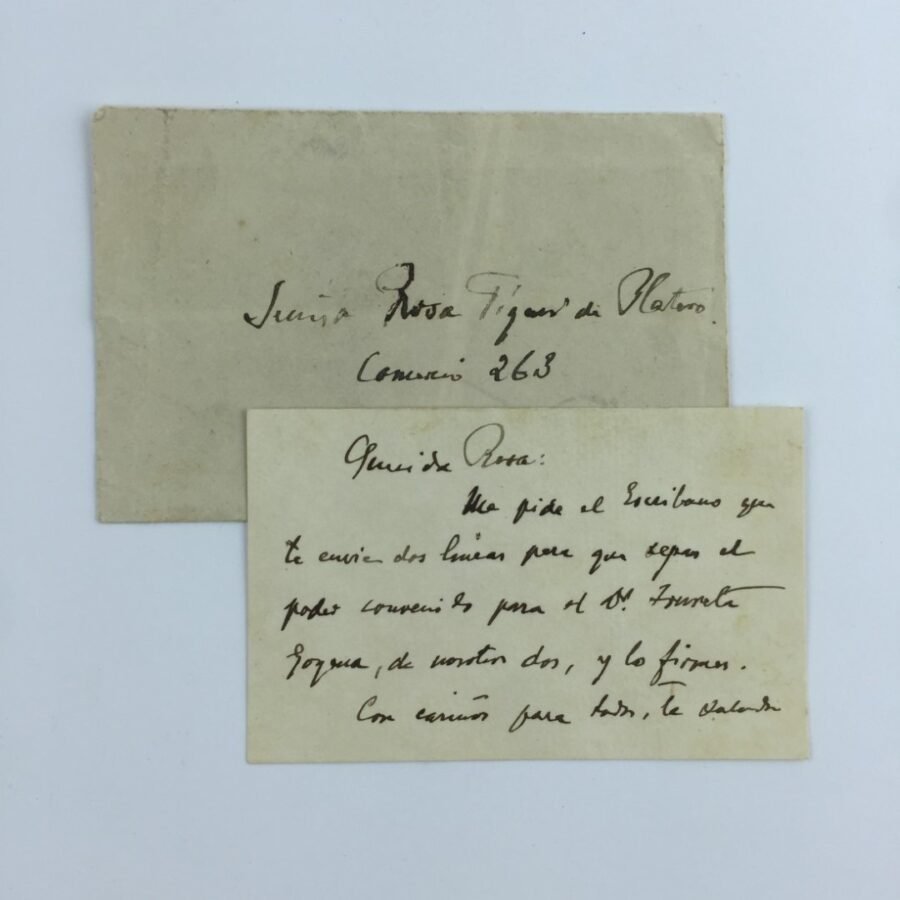 Señora Rosa Figari de Platero.
Comercio 263
Querida Rosa:
Me pide el Escribano que
te envie dos lineas para que sepas el
poder convenido para el Dr. Irureta
Goyena, de nosotros dos, y lo firmes.
Con cariños para todos, te saluda